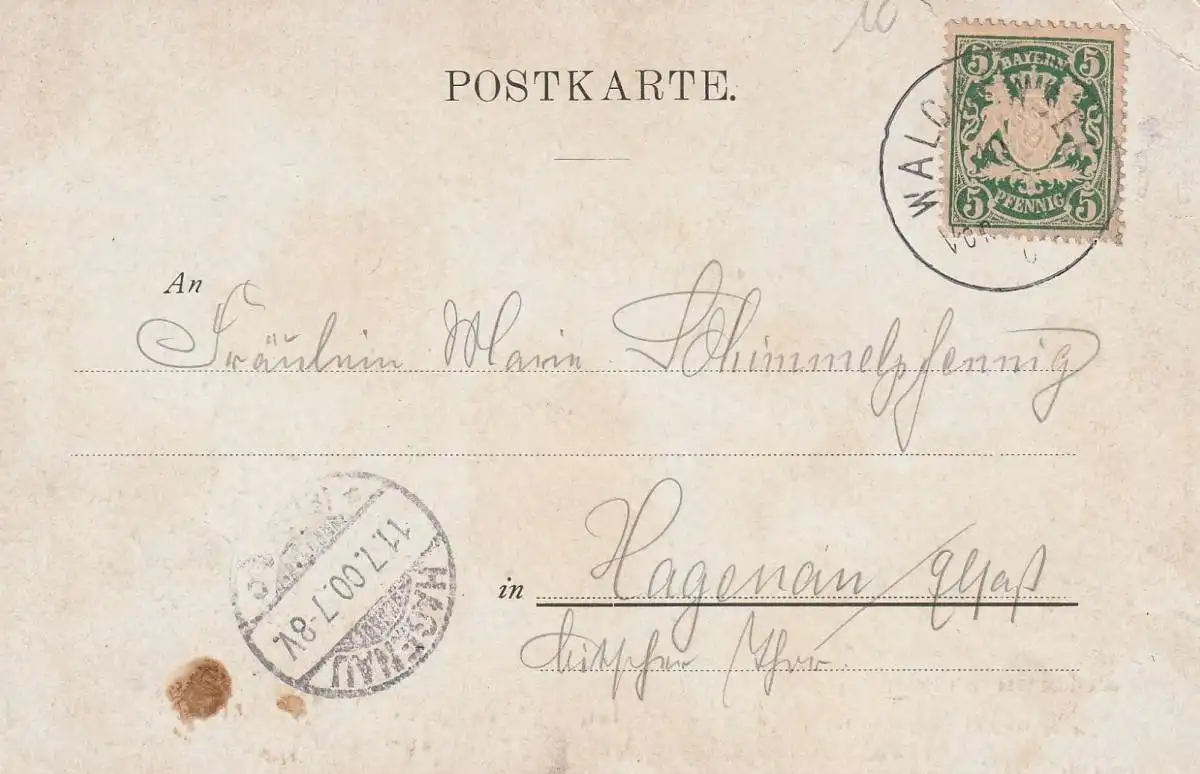 POSTKARTE.
5 BAYERN 5
5 PFENNIG 5
An Fräulein Marie Schimmelpfennig
in Hagenau / Elsaß
bitscher Thor.
11.7.00.7-8V.
HAGENAU